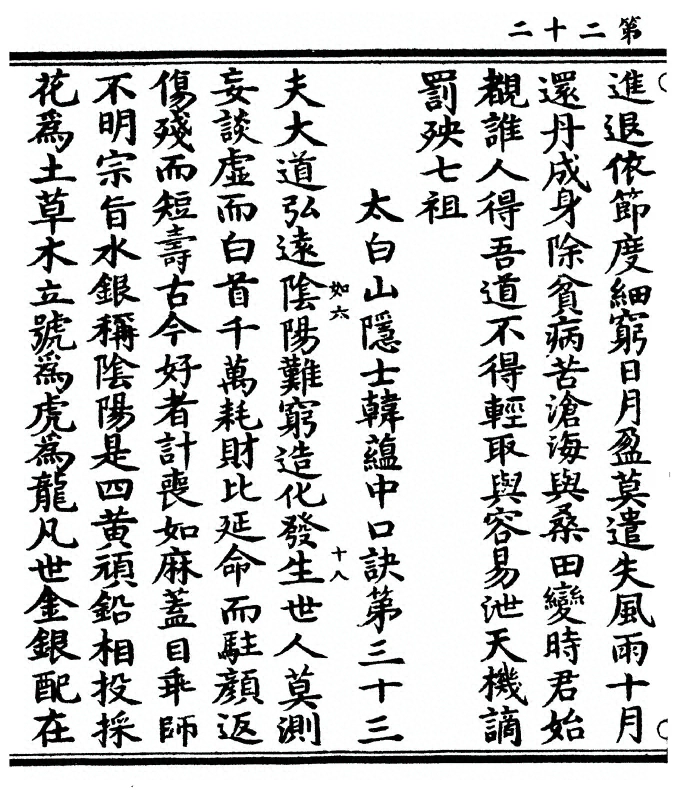 第二十二
進退依節度細窮日月盈莫遣失風雨十月
還丹成身除貧病苦滄海與桑田變時君始
覩誰人得吾道不得輕取與容易泄天機謫
罰殃七祖
太白山隱士韓蘊中口訣第三十三
如六
十八
夫大道弘遠陰陽難窮造化發生世人莫測
妄談虛而白首千萬耗財比延命而駐顏返
傷殘而短壽古今好者計喪如麻蓋目乖師
不明宗旨水銀稱陰陽是四黃頑鉛相投採
花爲土草木立號爲虎爲龍凡世金銀配在